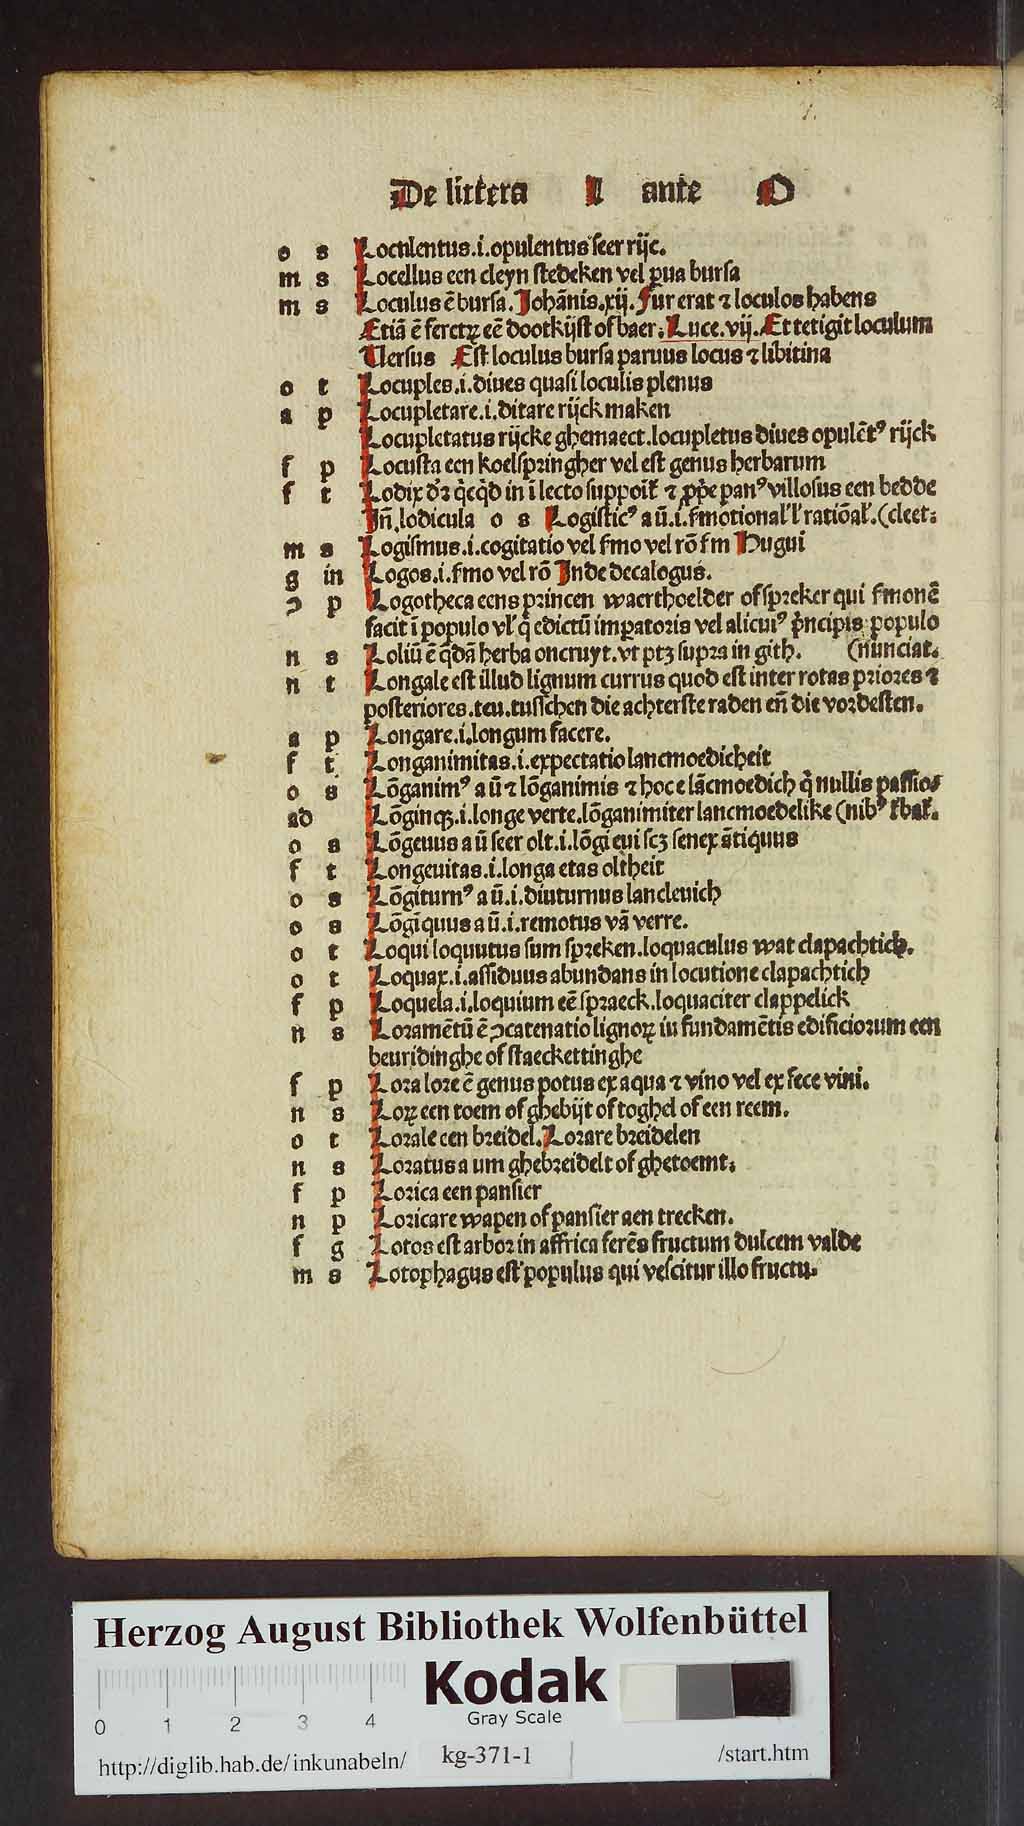 De littera L ante O
o s Loculentus.i.opulentus seer rijc.
m s Locellus een cleyn stedeken vel ꝑua bursa
m s Loculus ē bursa. Johānis.xij. Fur erat ⁊ loculos habens
Etiā ē feretꝝ eē dootkijst of baer. Luce.vij. Et tetigit loculum
Versus Est loculus bursa paruus locus ⁊ libitina
o t Locuples.i.diues quasi loculis plenus
a p Locupletare.i.ditare rijck maken
Locupletatus rijcke ghemaect.locupletus diues opulētꝰ rijck
f p Locusta een koelspringher vel est genus herbarum
f t Lodix dꝛ qͥcqͥd in lecto suppoit᷑ ⁊ ꝓpͥe panꝰ villosus een bedde
Jn̄.lodicula o s Logisticꝰ a ū.i. s᷑mōtional' l' ratiōal'. (cleet.
m s Logismus.i.cogitatio vel s᷑mo vel rō s᷑m Hugui
g in Logos.i.s᷑mo vel rō Jnde decalogus.
ↄ p Logotheca eens princen waerthoelder of spreker qui s᷑monē
facit ī populo vl' qͥ edictū imꝑatoris vel alicuiꝰ pͥncipis populo
n s Loliū ē qͣdā herba oncruyt.vt ptꝫ supra in gith. (nunciat.
n t Longale est illud lignum currus quod est inter rotas priores ⁊
posteriores.teu.tusschen die achterste raden eñ die vordesten.
a p Longare.i.longum facere.
f t Longanimitas.i.expectatio lancmoedicheit
o s Lōganimꝰ a ū ⁊ lōganimis ⁊ hoc e lācmoedich qͥ nullis passio⸗
ad Lōginqꝫ.i.longe verte.lōganimiter lancmoedelike (nibꝰ t᷑bat᷑.
o s Lōgeuus a ū seer olt.i.lōgi eui scꝫ senex ātiquus
f t Longeuitas.i.longa etas oltheit
o s Lōgiturnꝰ a ū.i.diuturnus lancleuich
o s Lōgīquus a ū.i.remotus vā verre.
o t Loqui loquutus sum spreken.loquaculus wat clapachtich.
o t Loquax.i.assiduus abundans in locutione clapachtich
f p Loquela.i.loquium eē spraeck.loquaciter clappelick
n s Loramētū ē ↄcatenatio lignoꝝ in fundamētis edificiorum een
beuridinghe of staeckettinghe
f p Lora lore ē genus potus ex aqua ⁊ vino vel ex fece vini.
n s Loꝝ een toem of ghebijt of toghel of een reem.
o t Lorale een breidel. Lorare breidelen
n s Loratus a um ghebreidelt of ghetoemt.
f p Lorica een pansier
n p Loricare wapen of pansier aen trecken.
f g Lotos est arbor in affrica ferēs fructum dulcem valde
m s Lotophagus est populus qui vescitur illo fructu.
Herzog August Bibliothek Wolfenbüttel
Kodak
Gray Scale
0 1 2 3 4
http://diglib.hab.de/inkunabeln/ kg-371-1 /start.htm